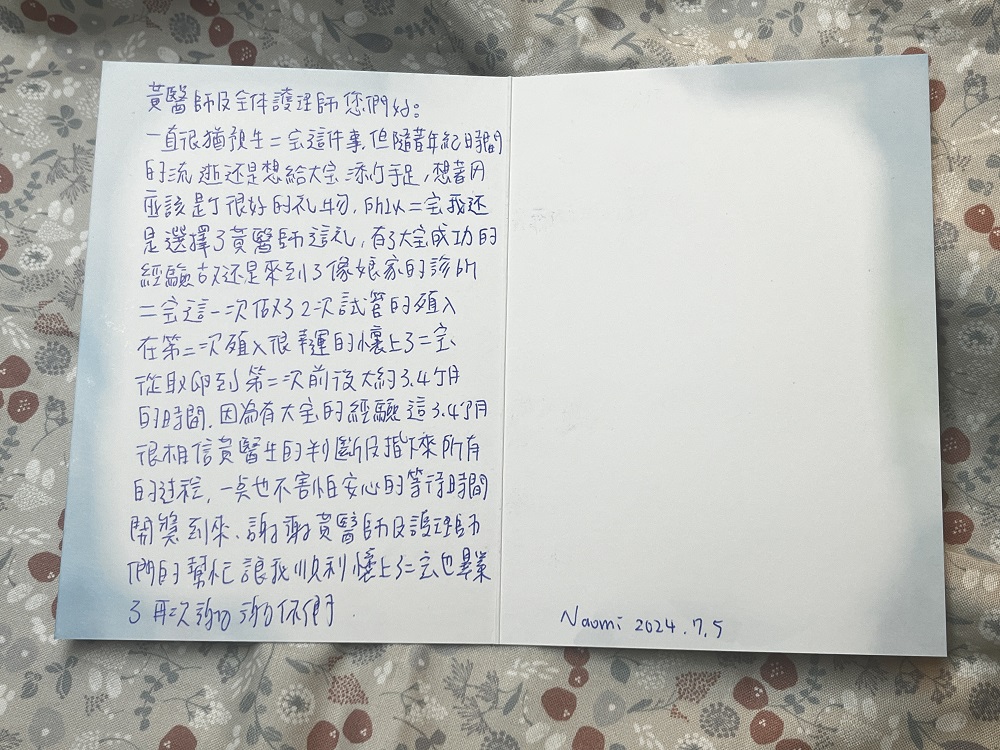 黃醫師及全体護理師您們好：
一直很猶豫生二宝這件事，但隨著年紀時間
的流逝还是想給大宝添个手足，想著因
應該是个很好的礼物，所以二宝我还
是選擇了黃醫師這礼，有了大宝成功的
經驗故还是來到了像娘家的診所
二宝這一次做了2次試管的殖入
在第二次殖入很幸運的懷上了二宝
從取卵到第二次前後大約3.4个月
的時間，因為有大宝的經驗這3.4个月
很相信黃醫生的判斷及指下來所有
的过程，一点也不害怕安心的等待時間
開獎到來、謝謝黃醫師及護理師
們的幫忙讓我順利懷上了二宝也畢業
了再次謝謝你們.
Naomi 2024.7.5